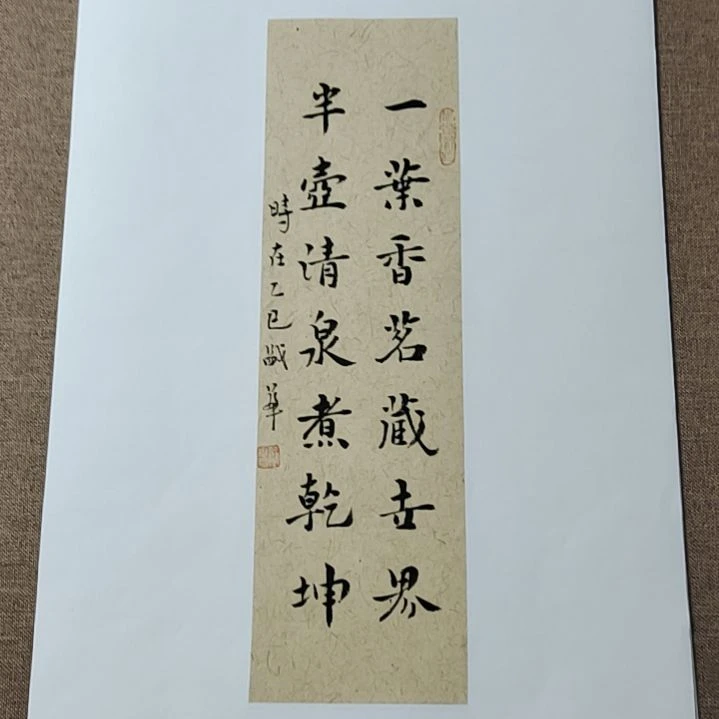 一葉香茗藏世界
半壺清泉煮乾坤
時在乙巳